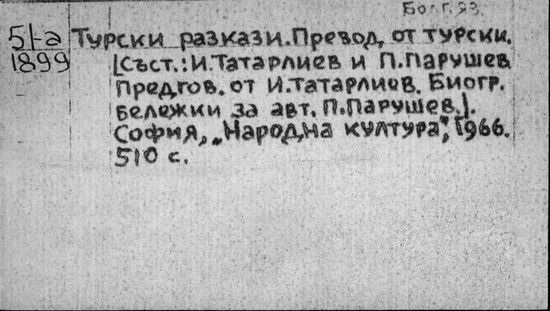 Болг. яз.
51-а
1899
Турски разкази. Превод от турски.
[Съст.: И. Татарлиев и П. Парушев
Предгов. от И. Татарлиев. Биогр.
бележки за авт. П. Парушев.].
София, „Народна култура", 1966.
510 с.